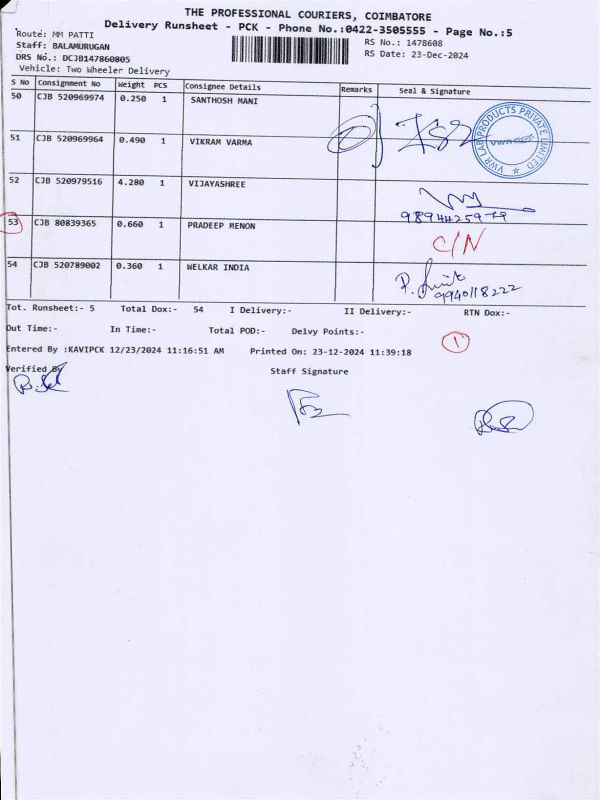 THE PROFESSIONAL COURIERS, COIMBATORE
Delivery Runsheet - PCK - Phone No.:0422-3505555 - Page No.:5
Route: MM PATTI
RS No.: 1478608
Staff: BALAMURUGAN
RS Date: 23-Dec-2024
DRS No.: DCJB147860805
Vehicle: Two Wheeler Delivery
S No Consignment No Weight PCS Consignee Details Remarks Seal & Signature
50 CJB 520969974 0.250 1 SANTHOSH MANI
51 CJB 520969964 0.490 1 VIKRAM VARMA
VWR LAB PRODUCTS PRIVATE LIMITED
52 CJB 520979516 4.280 1 VIJAYASHREE
9894425979
53 CJB 80839365 0.660 1 PRADEEP MENON C/N
54 CJB 520789002 0.360 1 WELKAR INDIA
9940118222
Tot. Runsheet:- 5 Total Dox:- 54 I Delivery:- II Delivery:- RTN Dox:-
Out Time:- In Time:- Total POD:- Delvy Points:-
1
Entered By :KAVIPCK 12/23/2024 11:16:51 AM Printed On: 23-12-2024 11:39:18
Verified By Staff Signature